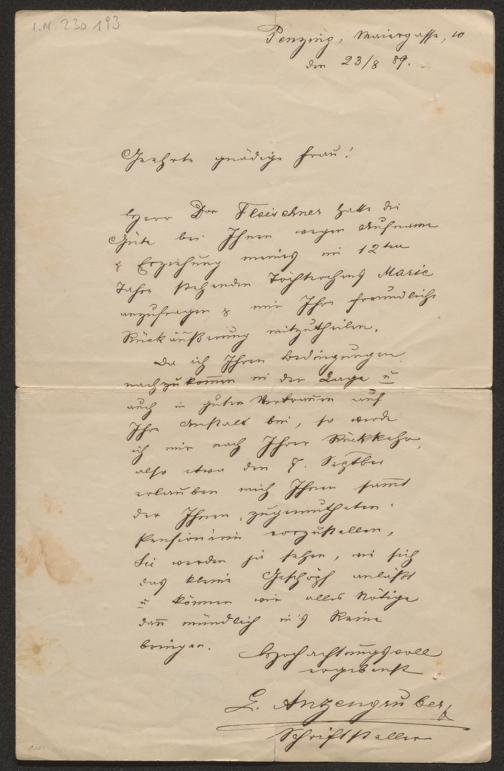 I.N. 230 193
Penzing, Maiergasse, 10
den 23/8 89.
Geehrte gnädige Frau!
Herr Dor Fleischner hatte die
Güte bei Ihnen wegen Aufnahme
& Erziehung meines im 12ten
Jahre stehenden Töchterchens Marie
anzufragen & mir Ihre freundliche
Rückäußerung mitzutheilen.
Da ich Ihren Bedingungen
nachzukommen in der Lage u
auch in guten Vertrauen auf
Ihre Anstalt bin, so werde
ich mir nach Ihrer Rückkehr,
also etwa den 7. September
erlauben mich Ihnen sammt
der Ihnen zugemutheten
Pensionärin vorzustellen,
Sie werden ja sehen, wie sich
das kleine Geschöpf anläßt
u können wir alles Nötige
dann mündlich in's Reine
bringen.
Hochachtungsvoll
ergebenst
L. Anzengruber,
Schriftsteller